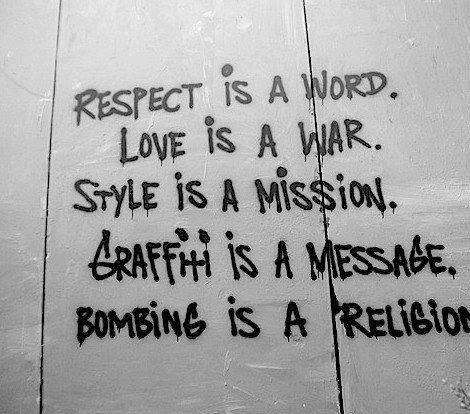 RESPECT iS A WORD.
LOVE iS A WAR.
STYLE iS A MiSSiON.
GRAFFiti iS A MESSAGE.
BOMBiNG iS A RELiGiON